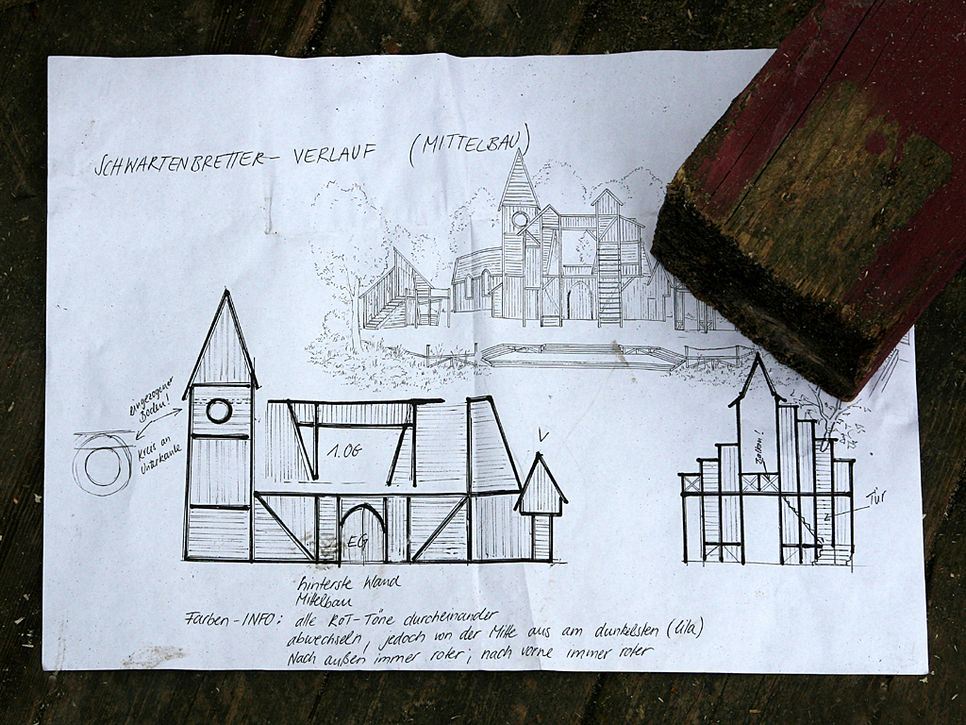 SCHWARTENBRETTER-VERLAUF (MITTELBAU)
eingezogener
Boden!
Kreis an
Unterkante
1.OG
EG
Balkon!
Tür
hinterste Wand
Mittelbau
Farben-INFO: alle ROT-Töne durcheinander
abwechseln, jedoch von der Mitte aus am dunkelsten (lila)
Nach außen immer roter; nach vorne immer roter